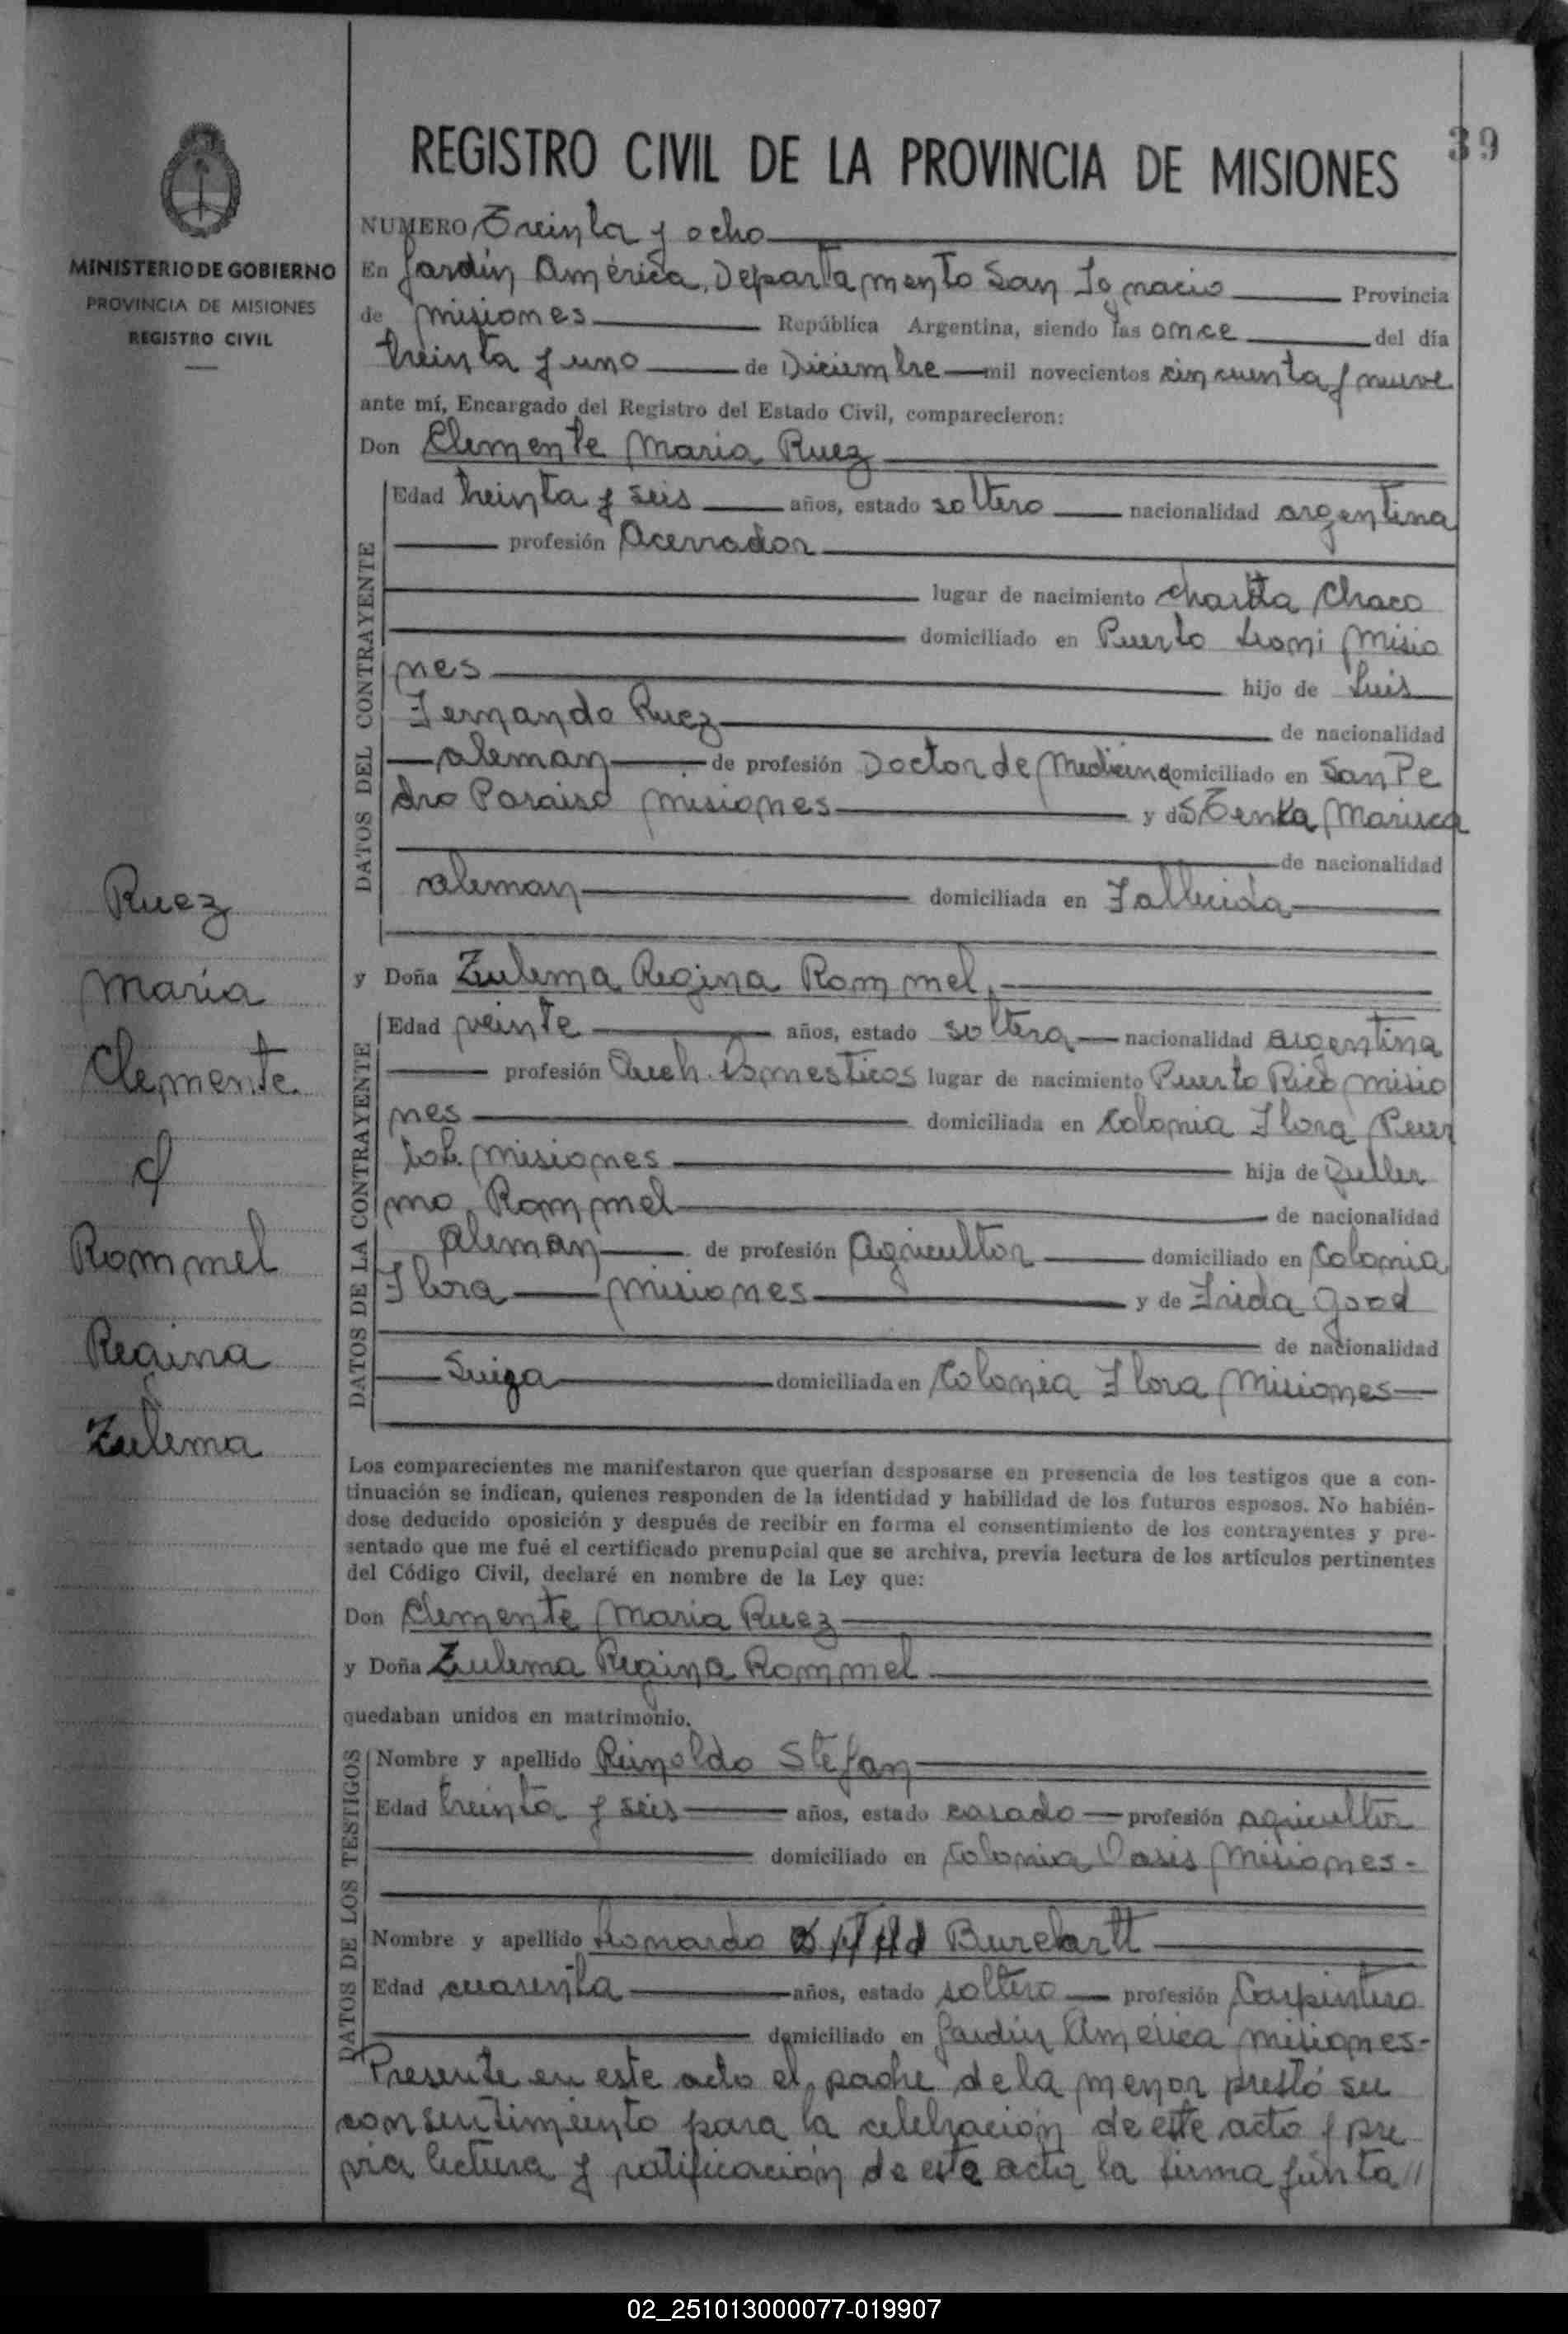 39
REGISTRO CIVIL DE LA PROVINCIA DE MISIONES
MINISTERIO DE GOBIERNO
PROVINCIA DE MISIONES
REGISTRO CIVIL
NUMERO Treinta y ocho
En Jardín América, Departamento San Ignacio Provincia
de Misiones República Argentina, siendo las once del día
treinta y uno de Diciembre mil novecientos cincuenta y nueve
ante mí, Encargado del Registro del Estado Civil, comparecieron:
Don Clemente Maria Ruez
DATOS DEL CONTRAYENTE
Edad treinta y seis años, estado soltero nacionalidad argentina
profesión Acerrador
lugar de nacimiento Chaco
domiciliado en Puerto Leoni Misio
nes hijo de Luis
Fernando Ruez de nacionalidad
aleman de profesión Doctor de Medicina domiciliado en San Pe
dro Paraiso Misiones y de Marisca
de nacionalidad
aleman domiciliada en Fallecida
Ruez
Maria
Clemente
c/
Rommel
Regina
Zulema
y Doña Zulema Regina Rommel
DATOS DE LA CONTRAYENTE
Edad veinte años, estado soltera nacionalidad argentina
profesión Queh. Domesticos lugar de nacimiento Puerto Rico Misio
nes domiciliada en Colonia Flora Puer
Misiones hija de Guiller
mo Rommel de nacionalidad
aleman de profesión Agricultor domiciliado en Colonia
Flora Misiones y de Frida Good
de nacionalidad
Suiza domiciliada en Colonia Flora Misiones
Los comparecientes me manifestaron que querían desposarse en presencia de los testigos que a con-
tinuación se indican, quienes responden de la identidad y habilidad de los futuros esposos. No habién-
dose deducido oposición y después de recibir en forma el consentimiento de los contrayentes y pre-
sentado que me fué el certificado prenupcial que se archiva, previa lectura de los artículos pertinentes
del Código Civil, declaré en nombre de la Ley que:
Don Clemente Maria Ruez
y Doña Zulema Regina Rommel
quedaban unidos en matrimonio.
DATOS DE LOS TESTIGOS
Nombre y apellido Reinoldo Stefan
Edad treinta y seis años, estado casado profesión agricultor
domiciliado en Colonia Oasis Misiones-
Nombre y apellido Leonardo Burckartt
Edad cuarenta años, estado soltero profesión Carpintero
domiciliado en Jardin America Misiones-
Presente en este acto el padre de la menor prestó su
consentimiento para la celebración de este acto y pre
via lectura y ratificación de esta acta la firma junta //
02_251013000077-019907